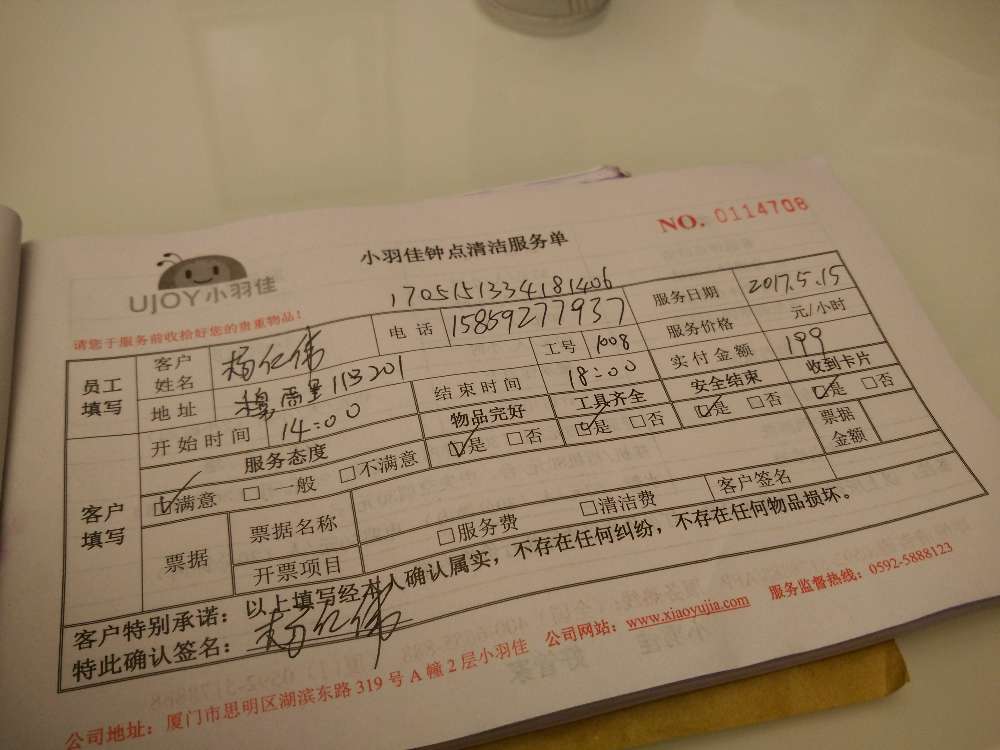 NO. 0114708
小羽佳钟点清洁服务单
UJOY小羽佳
请您于服务前收拾好您的贵重物品！
1705151334181406
员工填写 客户姓名 杨仁伟 电话 15859277937 服务日期 2017.5.15
地址 113201 工号 1008 服务价格 元/小时
开始时间 14:00 结束时间 18:00 实付金额 199
客户填写 服务态度 物品完好 工具齐全 安全结束 收到卡片
☑满意 □一般 □不满意 ☑是 □否 ☑是 □否 ☑是 □否 ☑是 □否
票据 票据名称 票据金额
开票项目 □服务费 □清洁费 客户签名
客户特别承诺：以上填写经本人确认属实，不存在任何纠纷，不存在任何物品损坏。
特此确认签名：杨仁伟
公司地址：厦门市思明区湖滨东路319号A幢2层小羽佳 公司网站：www.xiaoyujia.com 服务监督热线：0592-5888123